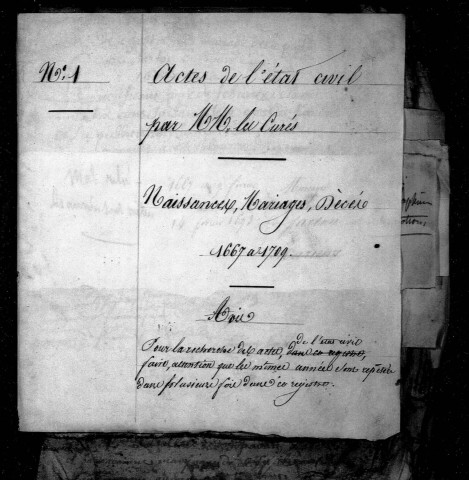 N°. 1
Actes de l'état civil
par MM, les Curés
Naissances, Mariages, Décés
1667 a 1709.
Avis
Pour la recherche des actes, dans ce registre, de l'état civil
faire attention que les mêmes années sont repétées
dans plusieurs fois dans ce registre.